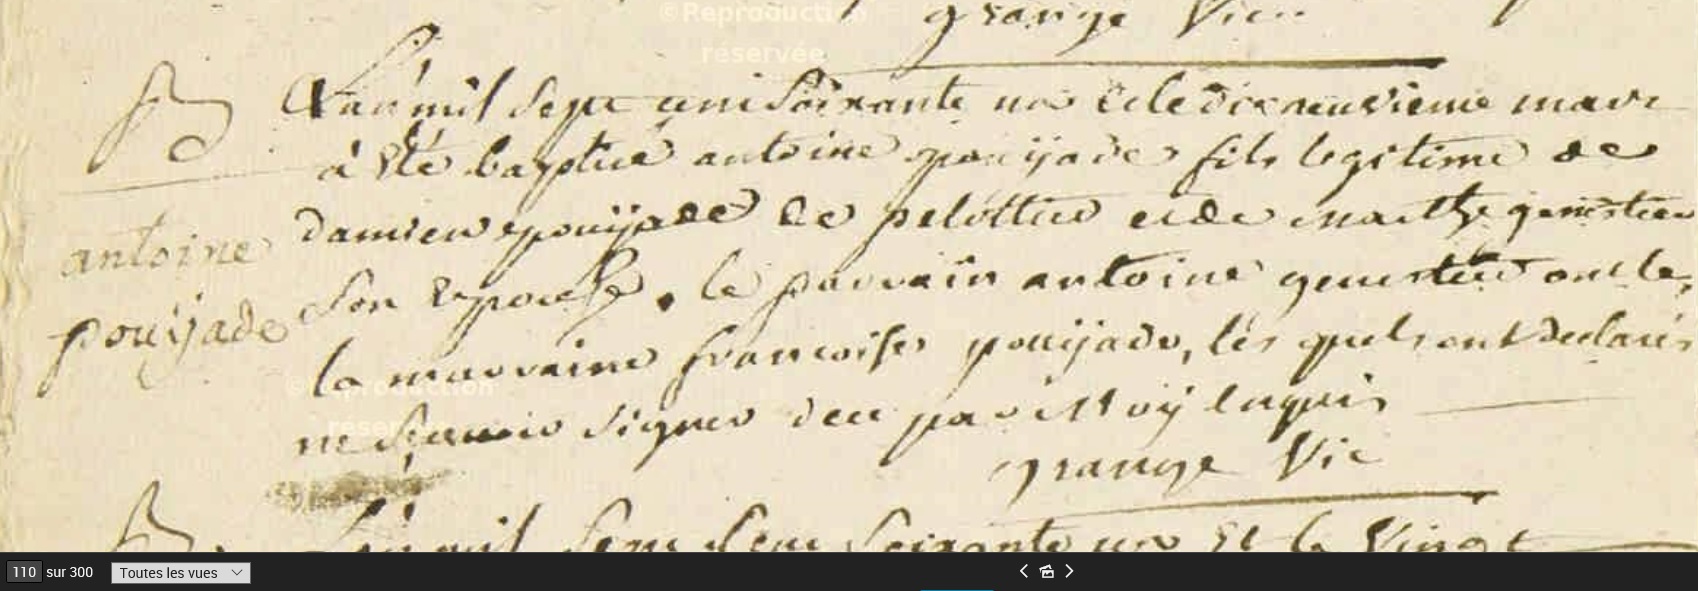 grange Vic..
©Reproduction
réservée
B
L'an mil sept cent soixante un et le dix neuvieme mars
à été baptisé antoine pouÿjade fils legitime de
antoine
damien pouÿjade de pelottier et de marthe genestier
pouijade
son epouse, le parrain antoine genestier oncle,
la marraine francoise pouijade, lés quels ont declarés
©Reproduction
réservée
ne scavoir signer de ce par moÿ enquis
grange Vic
B
L'an mil sept cent soixante un et le vingt
110 sur 300 Toutes les vues